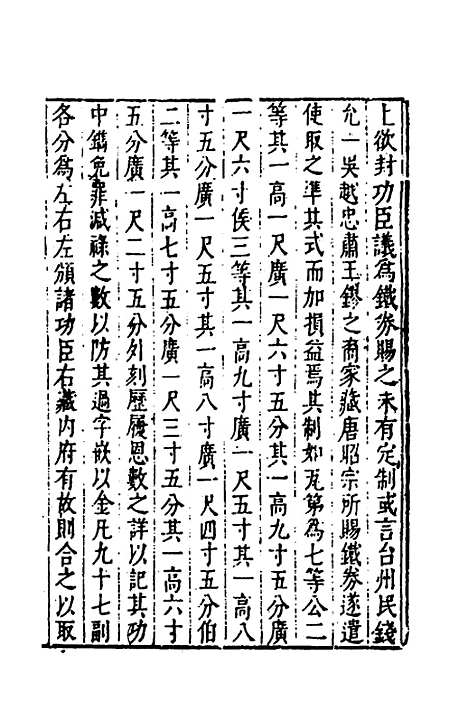 上欲封功臣議爲鐵券賜之未有定制或言台州民錢
允一吳越忠肅王鏐之裔家藏唐昭宗所賜鐵券遂遣
使取之準其式而加損益焉其制如瓦第為七等公二
等其一高一尺廣一尺六寸五分其一高九寸五分廣
一尺六寸侯三等其一高九寸廣一尺五寸其一高八
寸五分廣一尺五寸其一高八寸廣一尺四寸五分伯
二等其一高七寸五分廣一尺三寸五分其一高六寸
五分廣一尺二寸五分外刻歷履恩數之詳以記其功
中鐫免罪減祿之數以防其過字嵌以金凡九十七副
各分爲左右左頒諸功臣右藏内府有故則合之以取